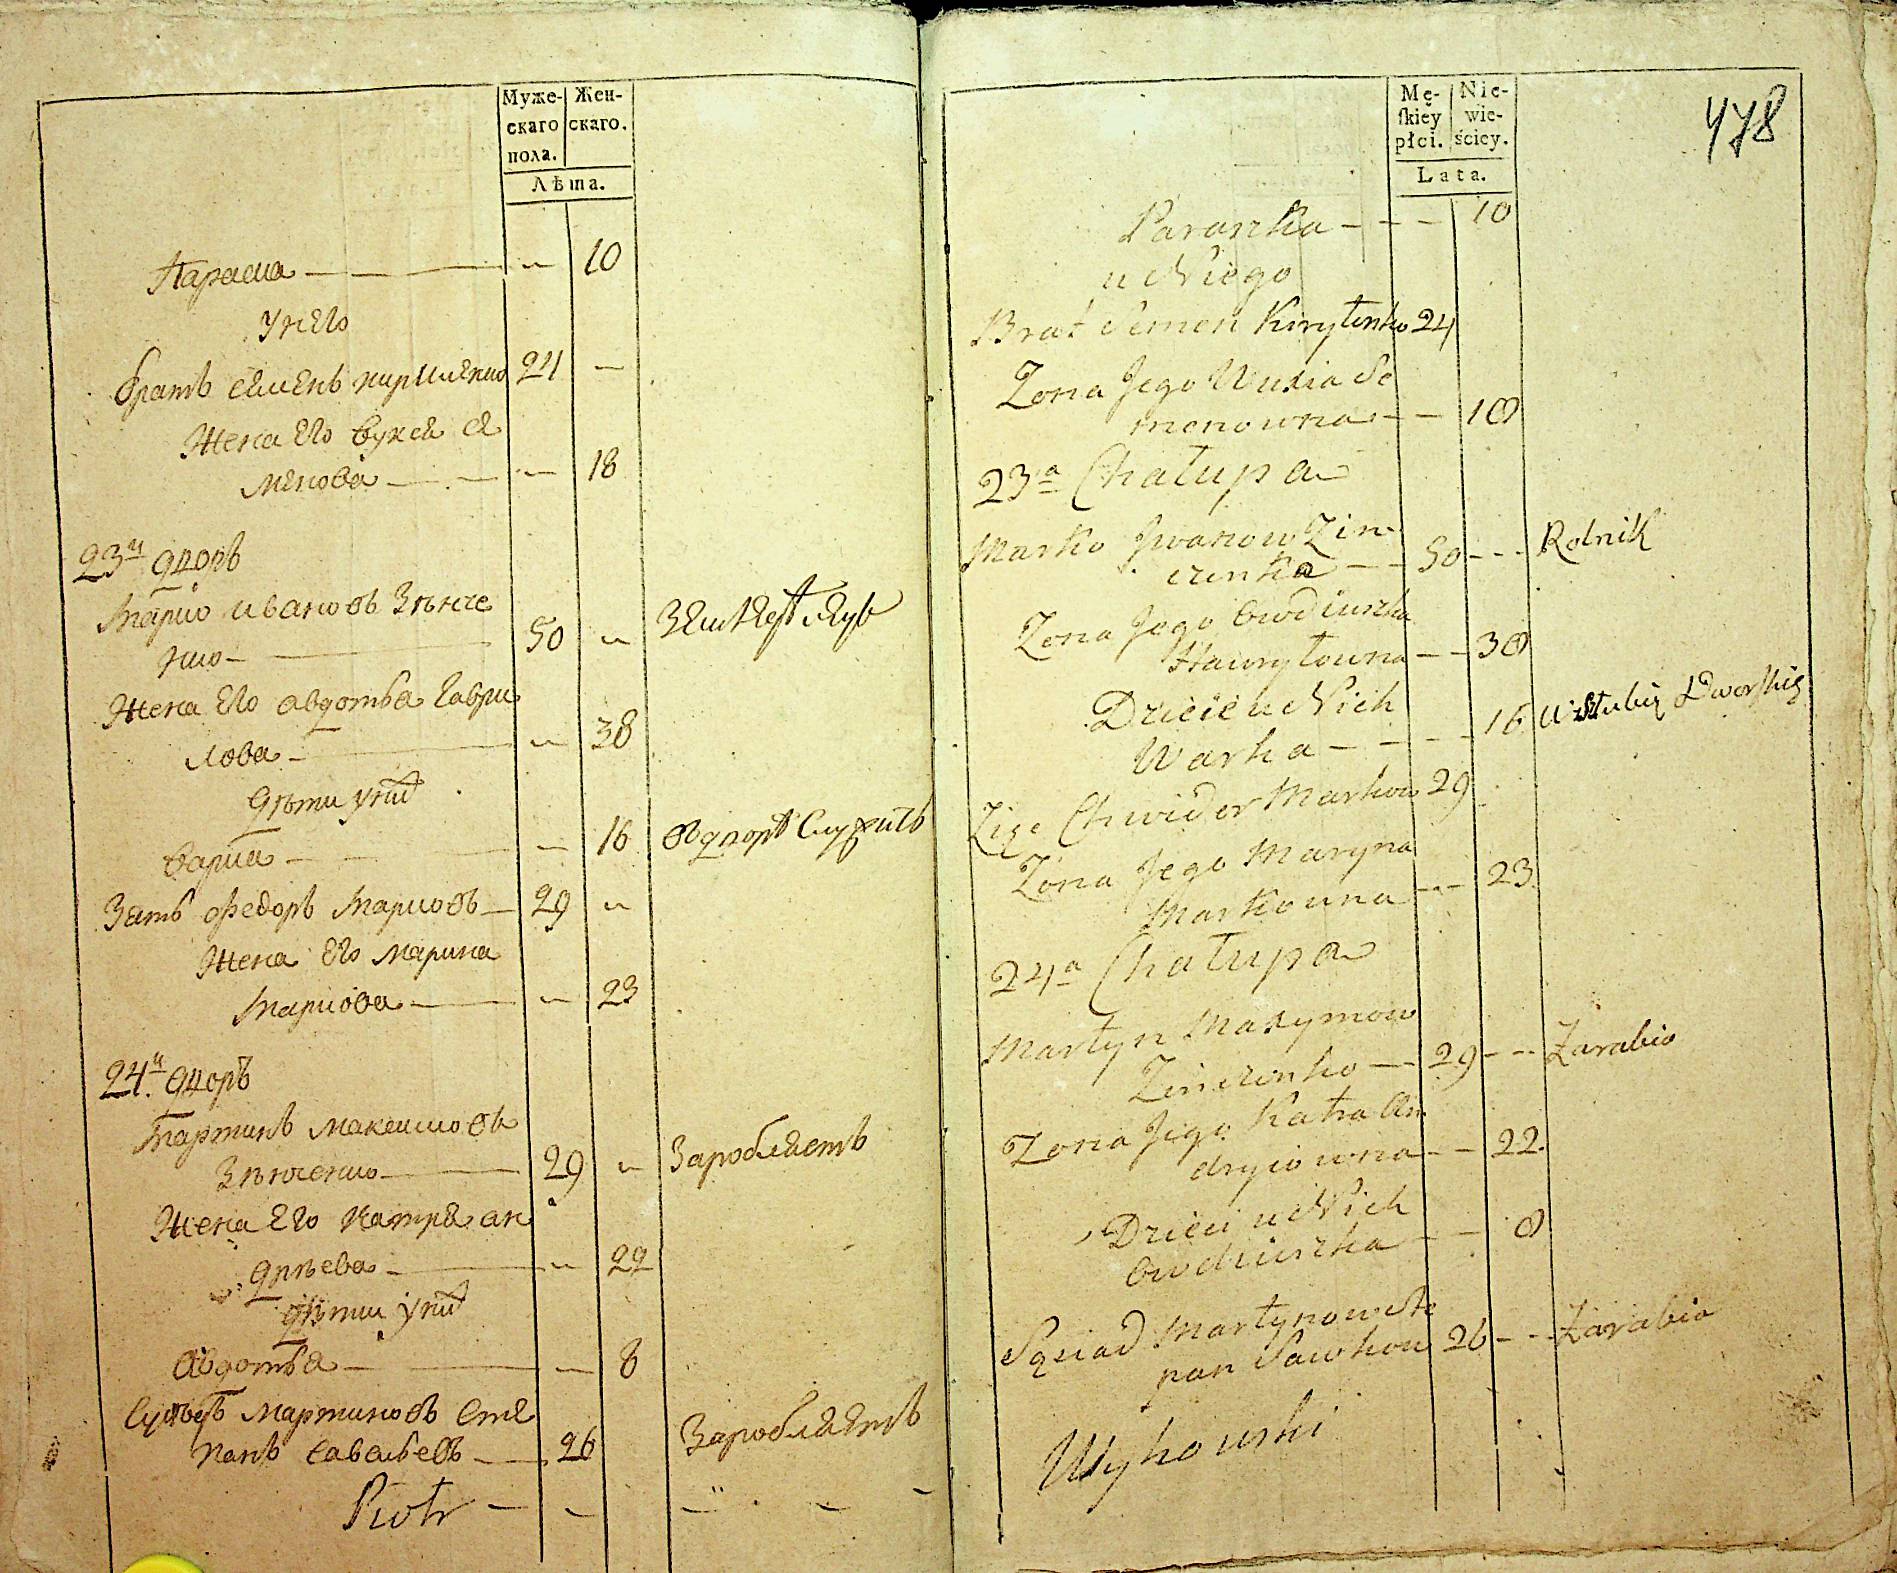 Муже-
скаго
пола.
Жен-
скаго.
Лѣта.
Параска — — 10
У него
братъ Семенъ Кириленко 24 —
Жена Его Вуксѣя Се
менова — — 18
23й дворъ
Марко Ивановъ Зѣнче
нко — 50 — Земледѣлецъ
Жена Его Авдотья Гаври
лова — — 38
дѣти у них
Варка — — 16 Въ дворѣ Служитъ
Зять Федоръ Марковъ — 29 —
Жена Его Марина
Маркова — — 23
24й дворъ
Мартинъ Максимовъ
Зѣнченко — 29 — Заробляетъ
Жена Его Катря Ан
дрѣева — — 22
дѣти у них
Авдотья — — 8
Сусѣдъ Мартиновъ Сте
панъ Савельевъ — 26 Заробляетъ
Piotr — — — — —
Mę-
ſkiey
płci.
Nie-
wie-
ściey.
Lata.
478
Paraszka — — — 10
u Niego
Brat Semen Kiryłenko 24
Zona Jego Wuxia Se
menowna — — 18
23a Chałupa
Marko Iwanow Zin-
czenko — — 50 - - - Rolnik
Zona Jego Owdiuszka
Hawryłowna — — 38
Dzieci u Nich
Warka — — — 16 W Służbię Dworskię
Zięc Chwidor Markow 29
Zona Jego Maryna
Markowna — — 23
24a Chałupa
Martyn Maxymow
Zinczenko — 29 - - - Zarabia
Zona Jego Katra An
dryiowna — — 22
Dzieci u Nich
Owdiuszka — — 8
Sąsiad Martynow Ste
pan Sawkow 26 - - - Zarabia
Wykowski